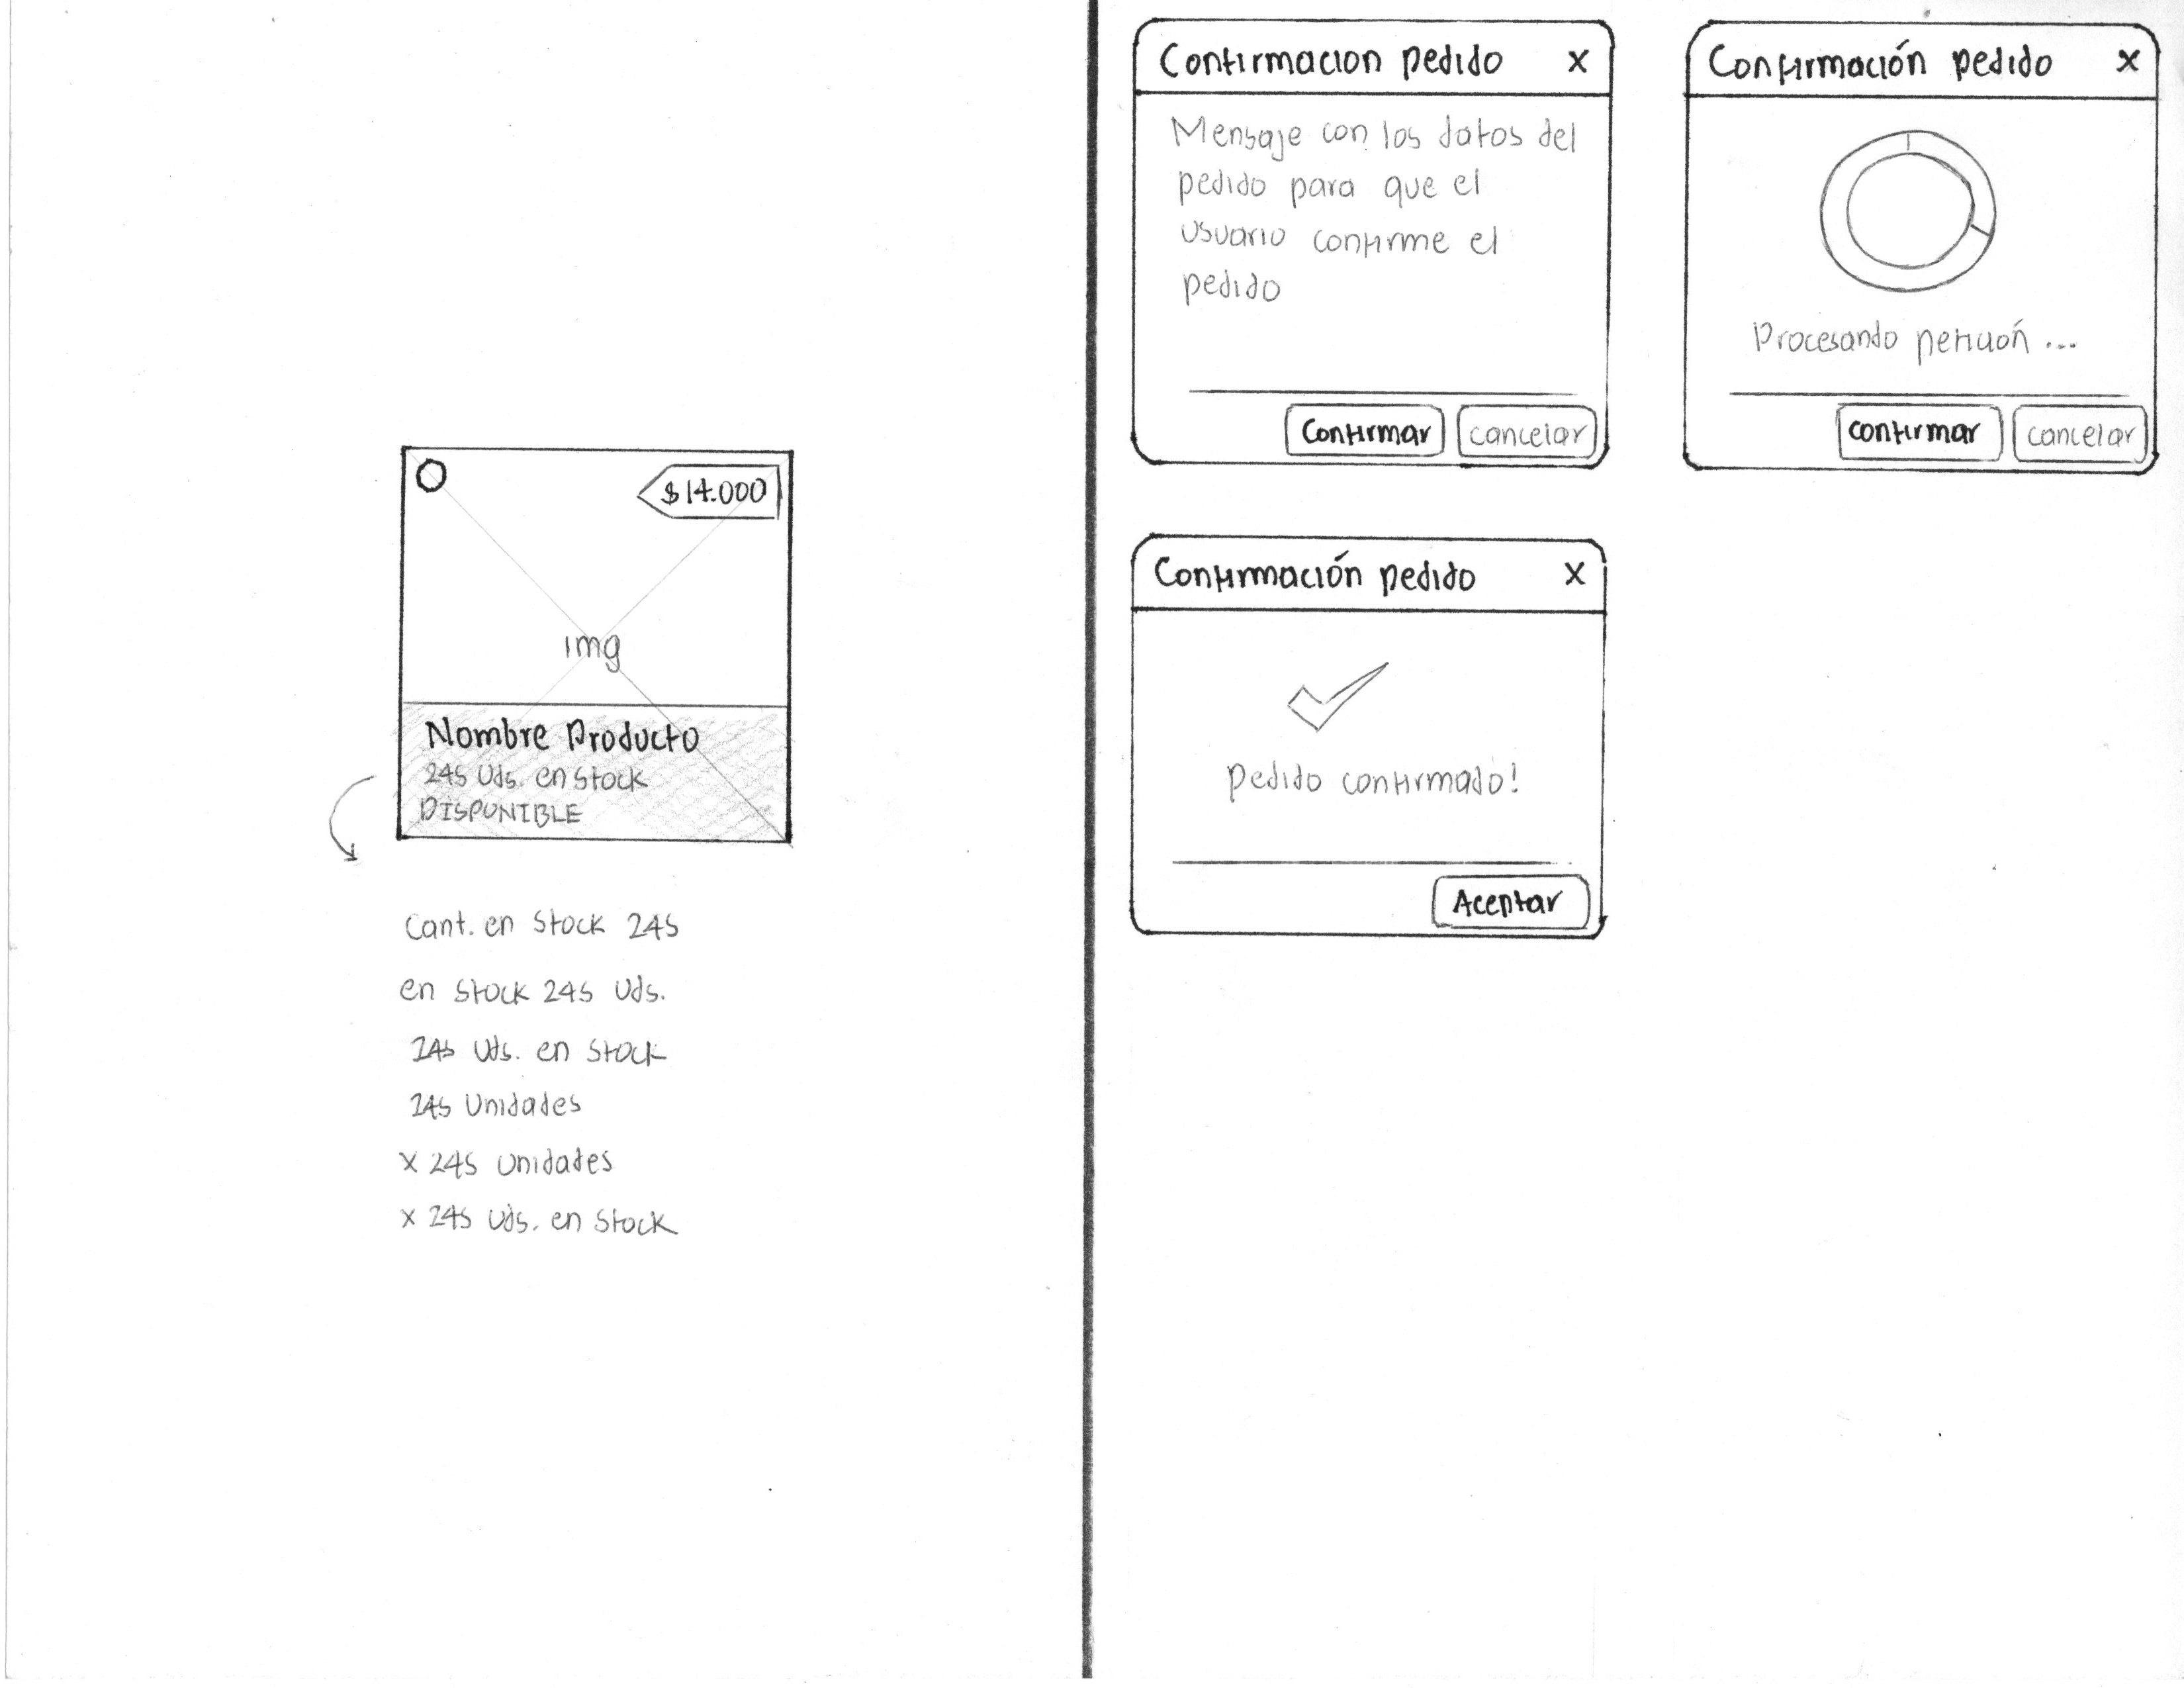 $14.000
img
Nombre Producto
245 Uds. en Stock
DISPONIBLE
Cant. en Stock 245
en Stock 245 Uds.
245 Uds. en Stock
245 Unidades
x 245 Unidades
x 245 Uds. en Stock
Confirmacion pedido X
Mensaje con los datos del
pedido para que el
usuario confirme el
pedido
Confirmar cancelar
Confirmación pedido X
Procesando petición ...
confirmar cancelar
Confirmación pedido X
pedido confirmado!
Aceptar